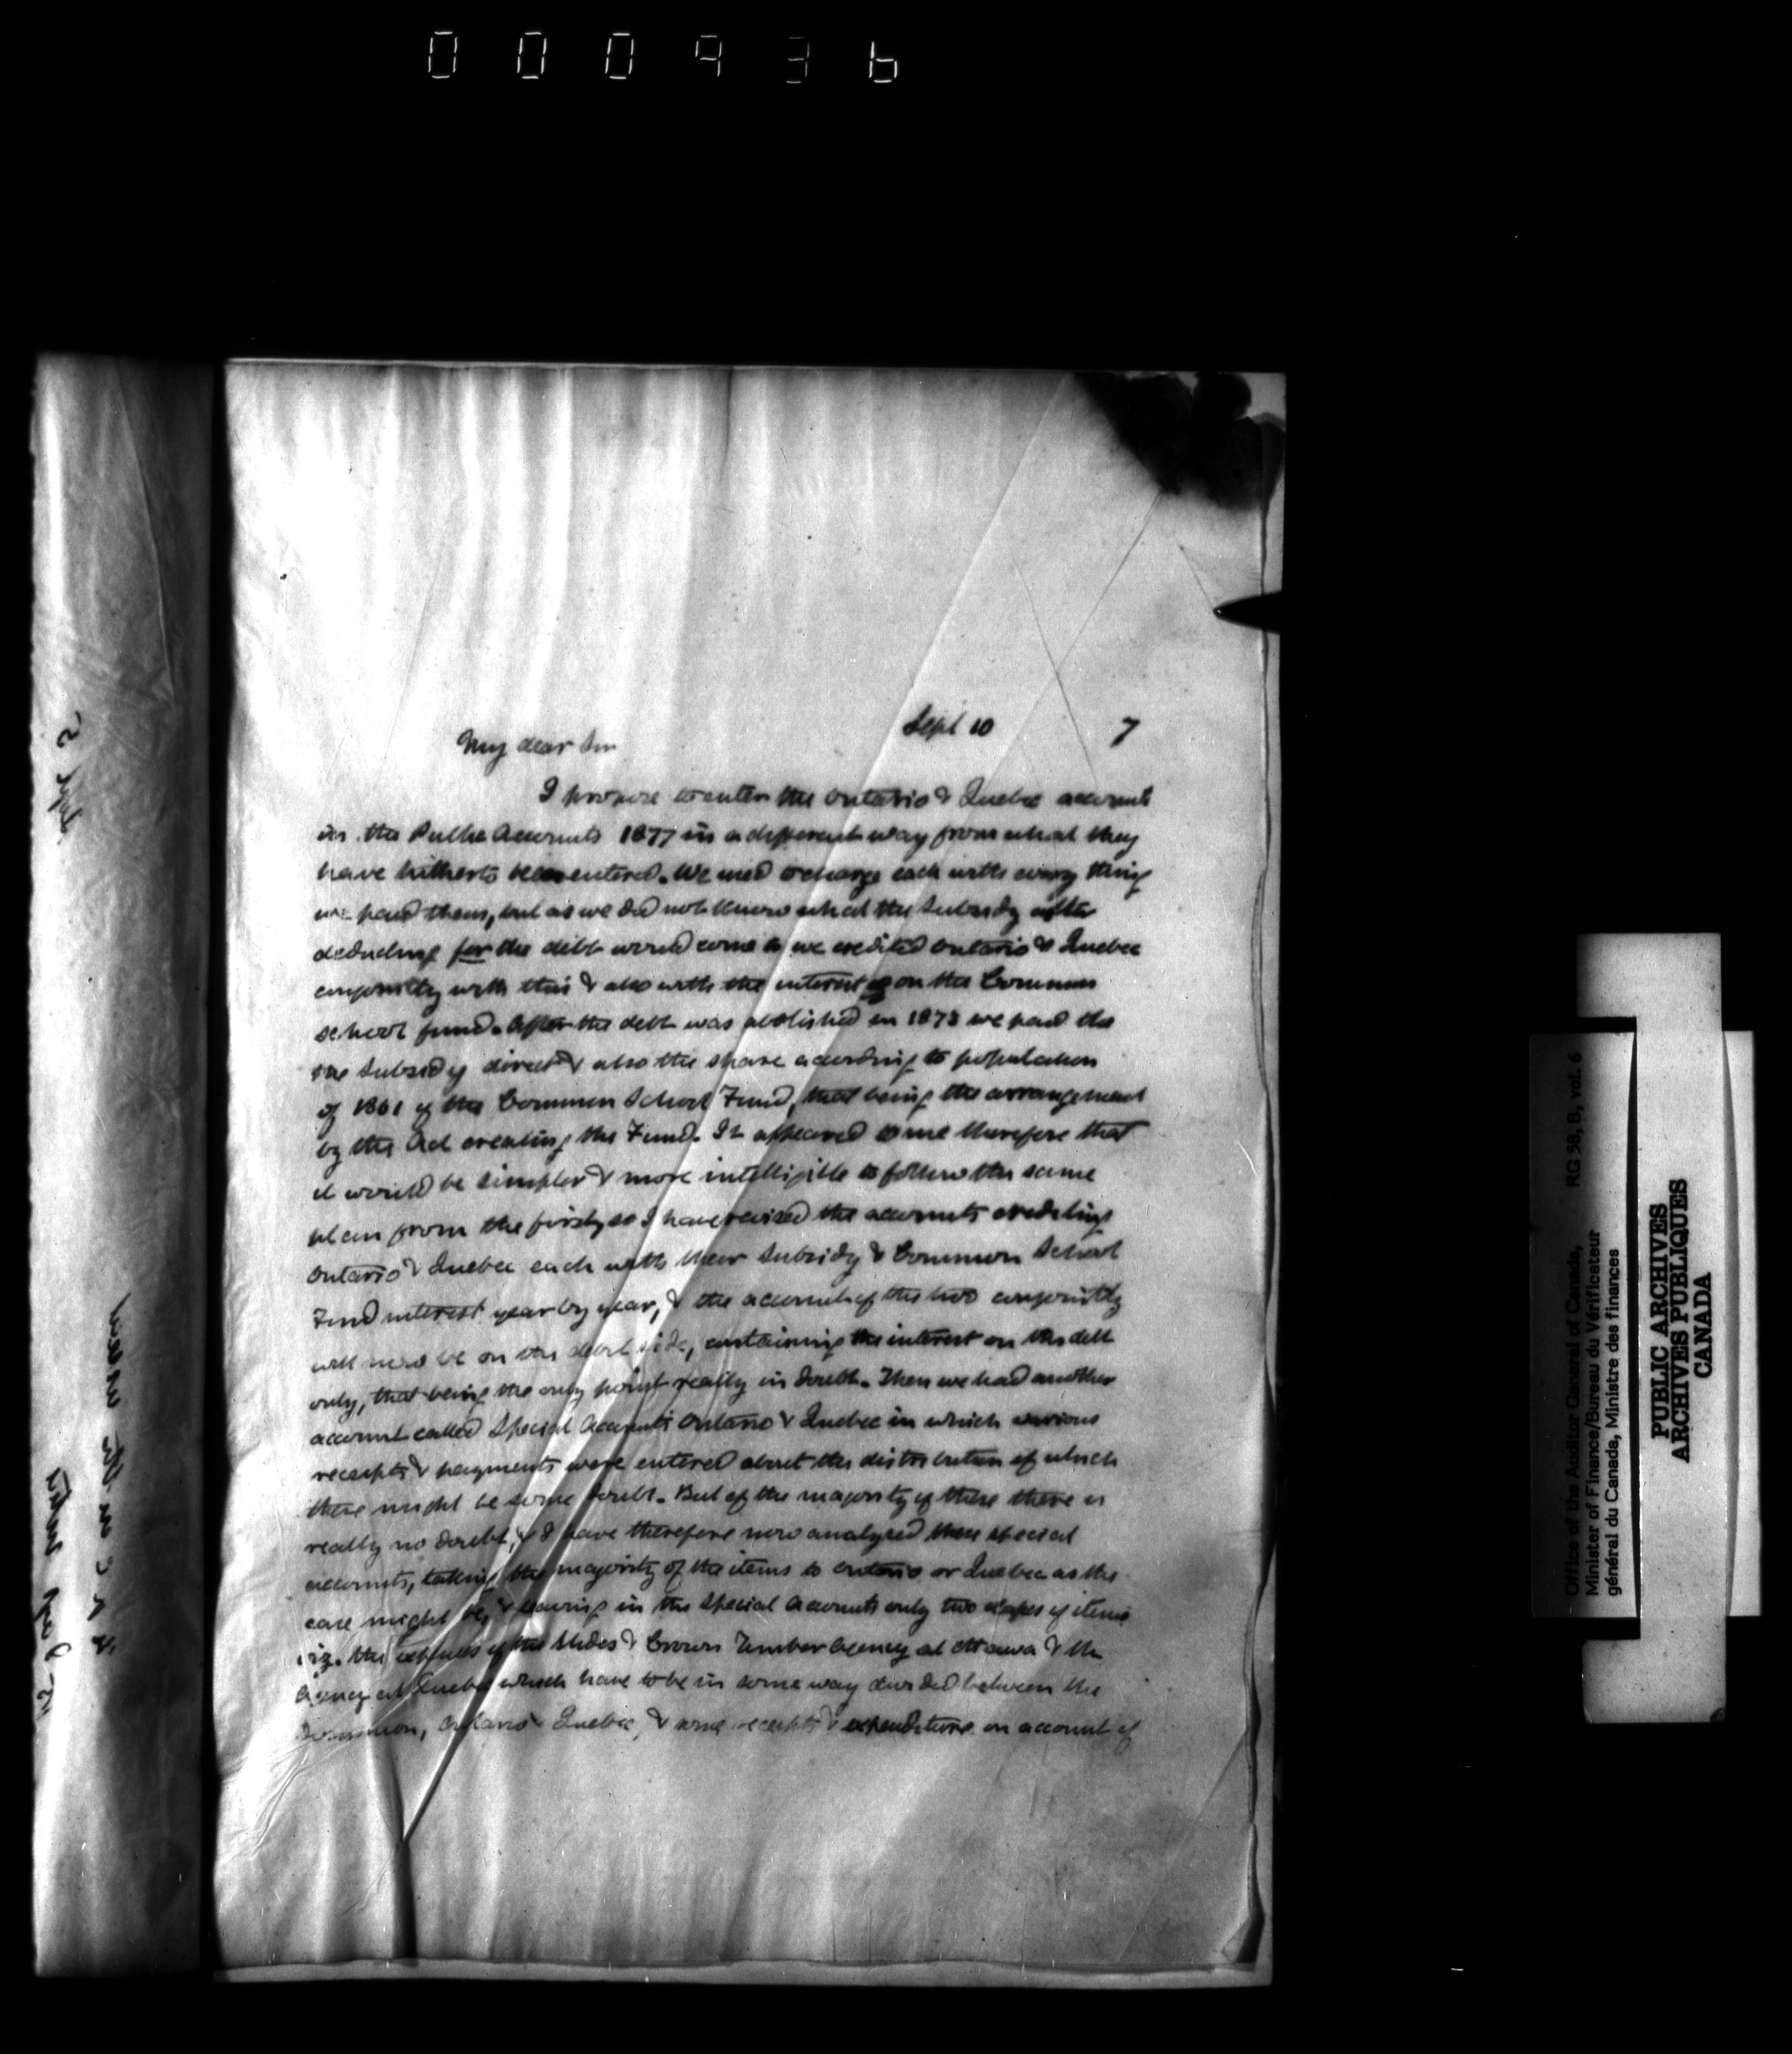 000936
Sept 10 7
My dear Sir
I propose to enter the Ontario & Quebec accounts
in the Public Accounts 1877 in a different way from what they
have hitherto been entered. We used to charge each with every thing
we paid them, but as we did not know what the subsidy after
deducting for the debt would come to we credited Ontario & Quebec
conjointly with this & also with the interest on the Common
school fund. After the debt was abolished in 1873 we paid the
subsidy direct & also the share according to population
of 1861 of the Common School Fund, that being the arrangement
by the Act creating the Fund. It appeared to me therefore that
it would be simpler & more intelligible to follow the same
plan from the first, so I have revised the accounts crediting
Ontario & Quebec each with their Subsidy & Common School
Fund interest year by year, & the account of the two conjointly
will now be on the debit side, containing the interest on the debt
only, that being the only point really in doubt. Then we had another
account called Special Accounts Ontario & Quebec in which various
receipts & payments were entered about the distribution of which
there might be some doubt. But of the majority of these there is
really no doubt, & I have therefore now analyzed these special
accounts, taking the majority of the items to Ontario or Quebec as the
case might be, & leaving in the Special Accounts only two classes of items
viz. the expenses of the Slides & Crown Timber Agency at Ottawa & the
Agency at Quebec which have to be in some way divided between the
Dominion, Ontario & Quebec, & some receipts & expenditure on account of
Office of the Auditor General of Canada, RG 58, B, vol. 6
Minister of Finance/Bureau du Vérificateur
général du Canada, Ministre des finances
PUBLIC ARCHIVES
ARCHIVES PUBLIQUES
CANADA